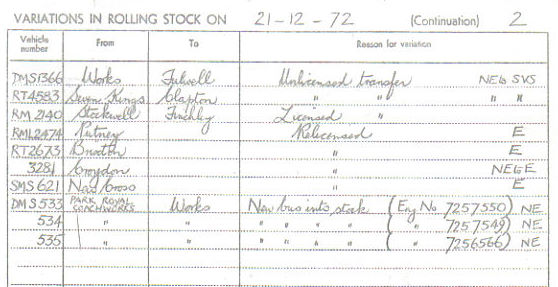 VARIATIONS IN ROLLING STOCK ON 21-12-72 (Continuation) 2
Vehicle number From To Reason for variation
DMS1366 Works Fulwell Unlicensed transfer NEG SVS
RT4583 Seven Kings Clapton " " " "
RM 2140 Stockwell Finchley Licensed "
RML2474 Putney Relicensed E
RT2673 Brixton " E
3281 Croydon " NEGE
SMS 621 New Cross " E
DMS 533 PARK ROYAL COACHWORKS Works New bus into stock (Eng No 7257550) NE
534 " " " " " " ( " 7257549) NE
535 " " " " " " ( " 7256566) NE